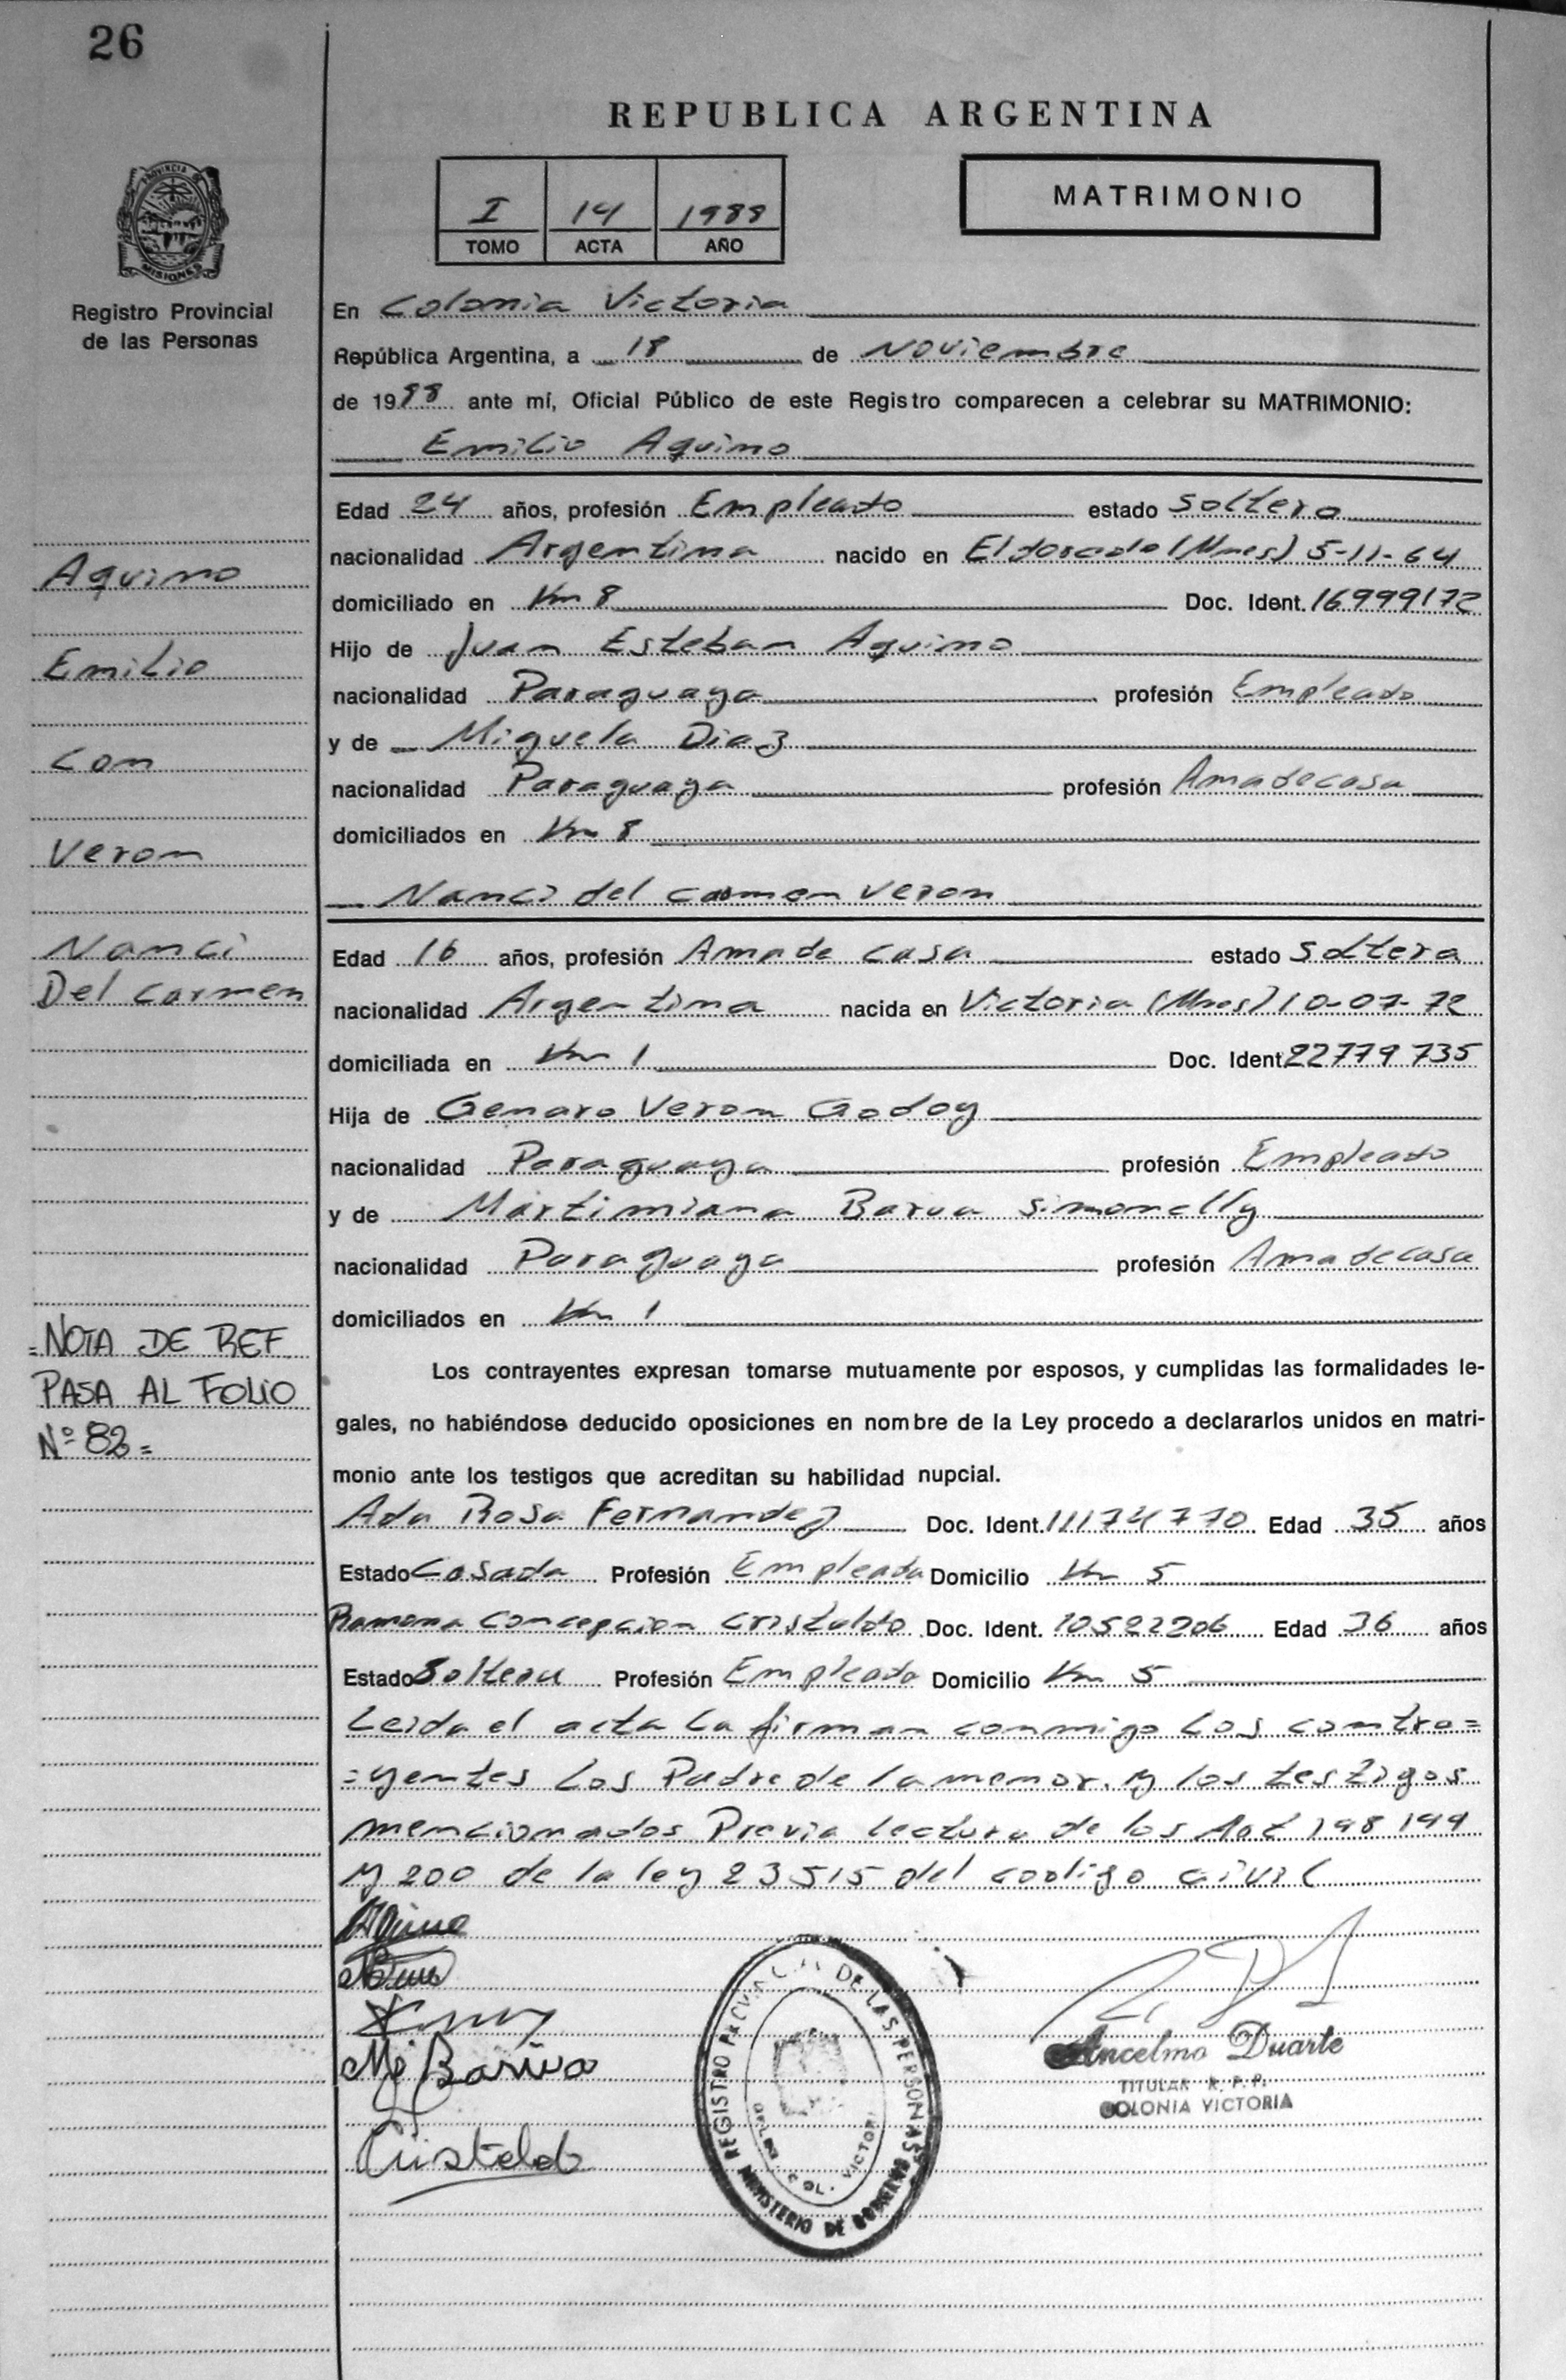 26
REPUBLICA ARGENTINA
I 14 1988
TOMO ACTA AÑO
MATRIMONIO
PROVINCIA DE
MISIONES
Registro Provincial
de las Personas
En Colonia Victoria
República Argentina, a 18 de Noviembre
de 1988 ante mí, Oficial Público de este Registro comparecen a celebrar su MATRIMONIO:
Emilio Aquino
Edad 24 años, profesión Empleado estado soltero
nacionalidad Argentina nacido en Eldorado (Mnes) 5-11-64
domiciliado en Km 8 Doc. Ident. 16999172
Hijo de Juan Esteban Aquino
nacionalidad Paraguaya profesión Empleado
y de Miguela Diaz
nacionalidad Paraguaya profesión Ama de casa
domiciliados en Km 8
Nanci del carmen veron
Edad 16 años, profesión Ama de casa estado soltera
nacionalidad Argentina nacida en Victoria (Mnes) 10-07-72
domiciliada en Km 1 Doc. Ident 22779735
Hija de Genaro Veron Godoy
nacionalidad Paraguaya profesión Empleado
y de Martimiana Barua Simonelly
nacionalidad Paraguaya profesión Ama de casa
domiciliados en Km 1
Aquino
Emilio
con
Veron
Nanci
Del Carmen
=NOTA DE REF
PASA AL FOLIO
Nº 82=
Los contrayentes expresan tomarse mutuamente por esposos, y cumplidas las formalidades le-
gales, no habiéndose deducido oposiciones en nombre de la Ley procedo a declararlos unidos en matri-
monio ante los testigos que acreditan su habilidad nupcial.
Ada Rosa Fernandez Doc. Ident. 11174770 Edad 35 años
Estado Casada Profesión Empleada Domicilio Km 5
Ramona Concepcion Cristaldo Doc. Ident. 10522206 Edad 36 años
Estado Soltera Profesión Empleada Domicilio Km 5
Leida el acta la firman conmigo los contra=
=yentes los Padre de la menor. y los testigos
mencionados Previa lectura de los Art 198 199
y 200 de la ley 23515 del codigo civil
Aquino
Mé Bariva
Cristaldo
REGISTRO PROVINCIAL DE LAS PERSONAS
MINISTERIO DE GOBIERNO
COL. VICTORI
Ancelmo Duarte
TITULAR R. P. P.
COLONIA VICTORIA